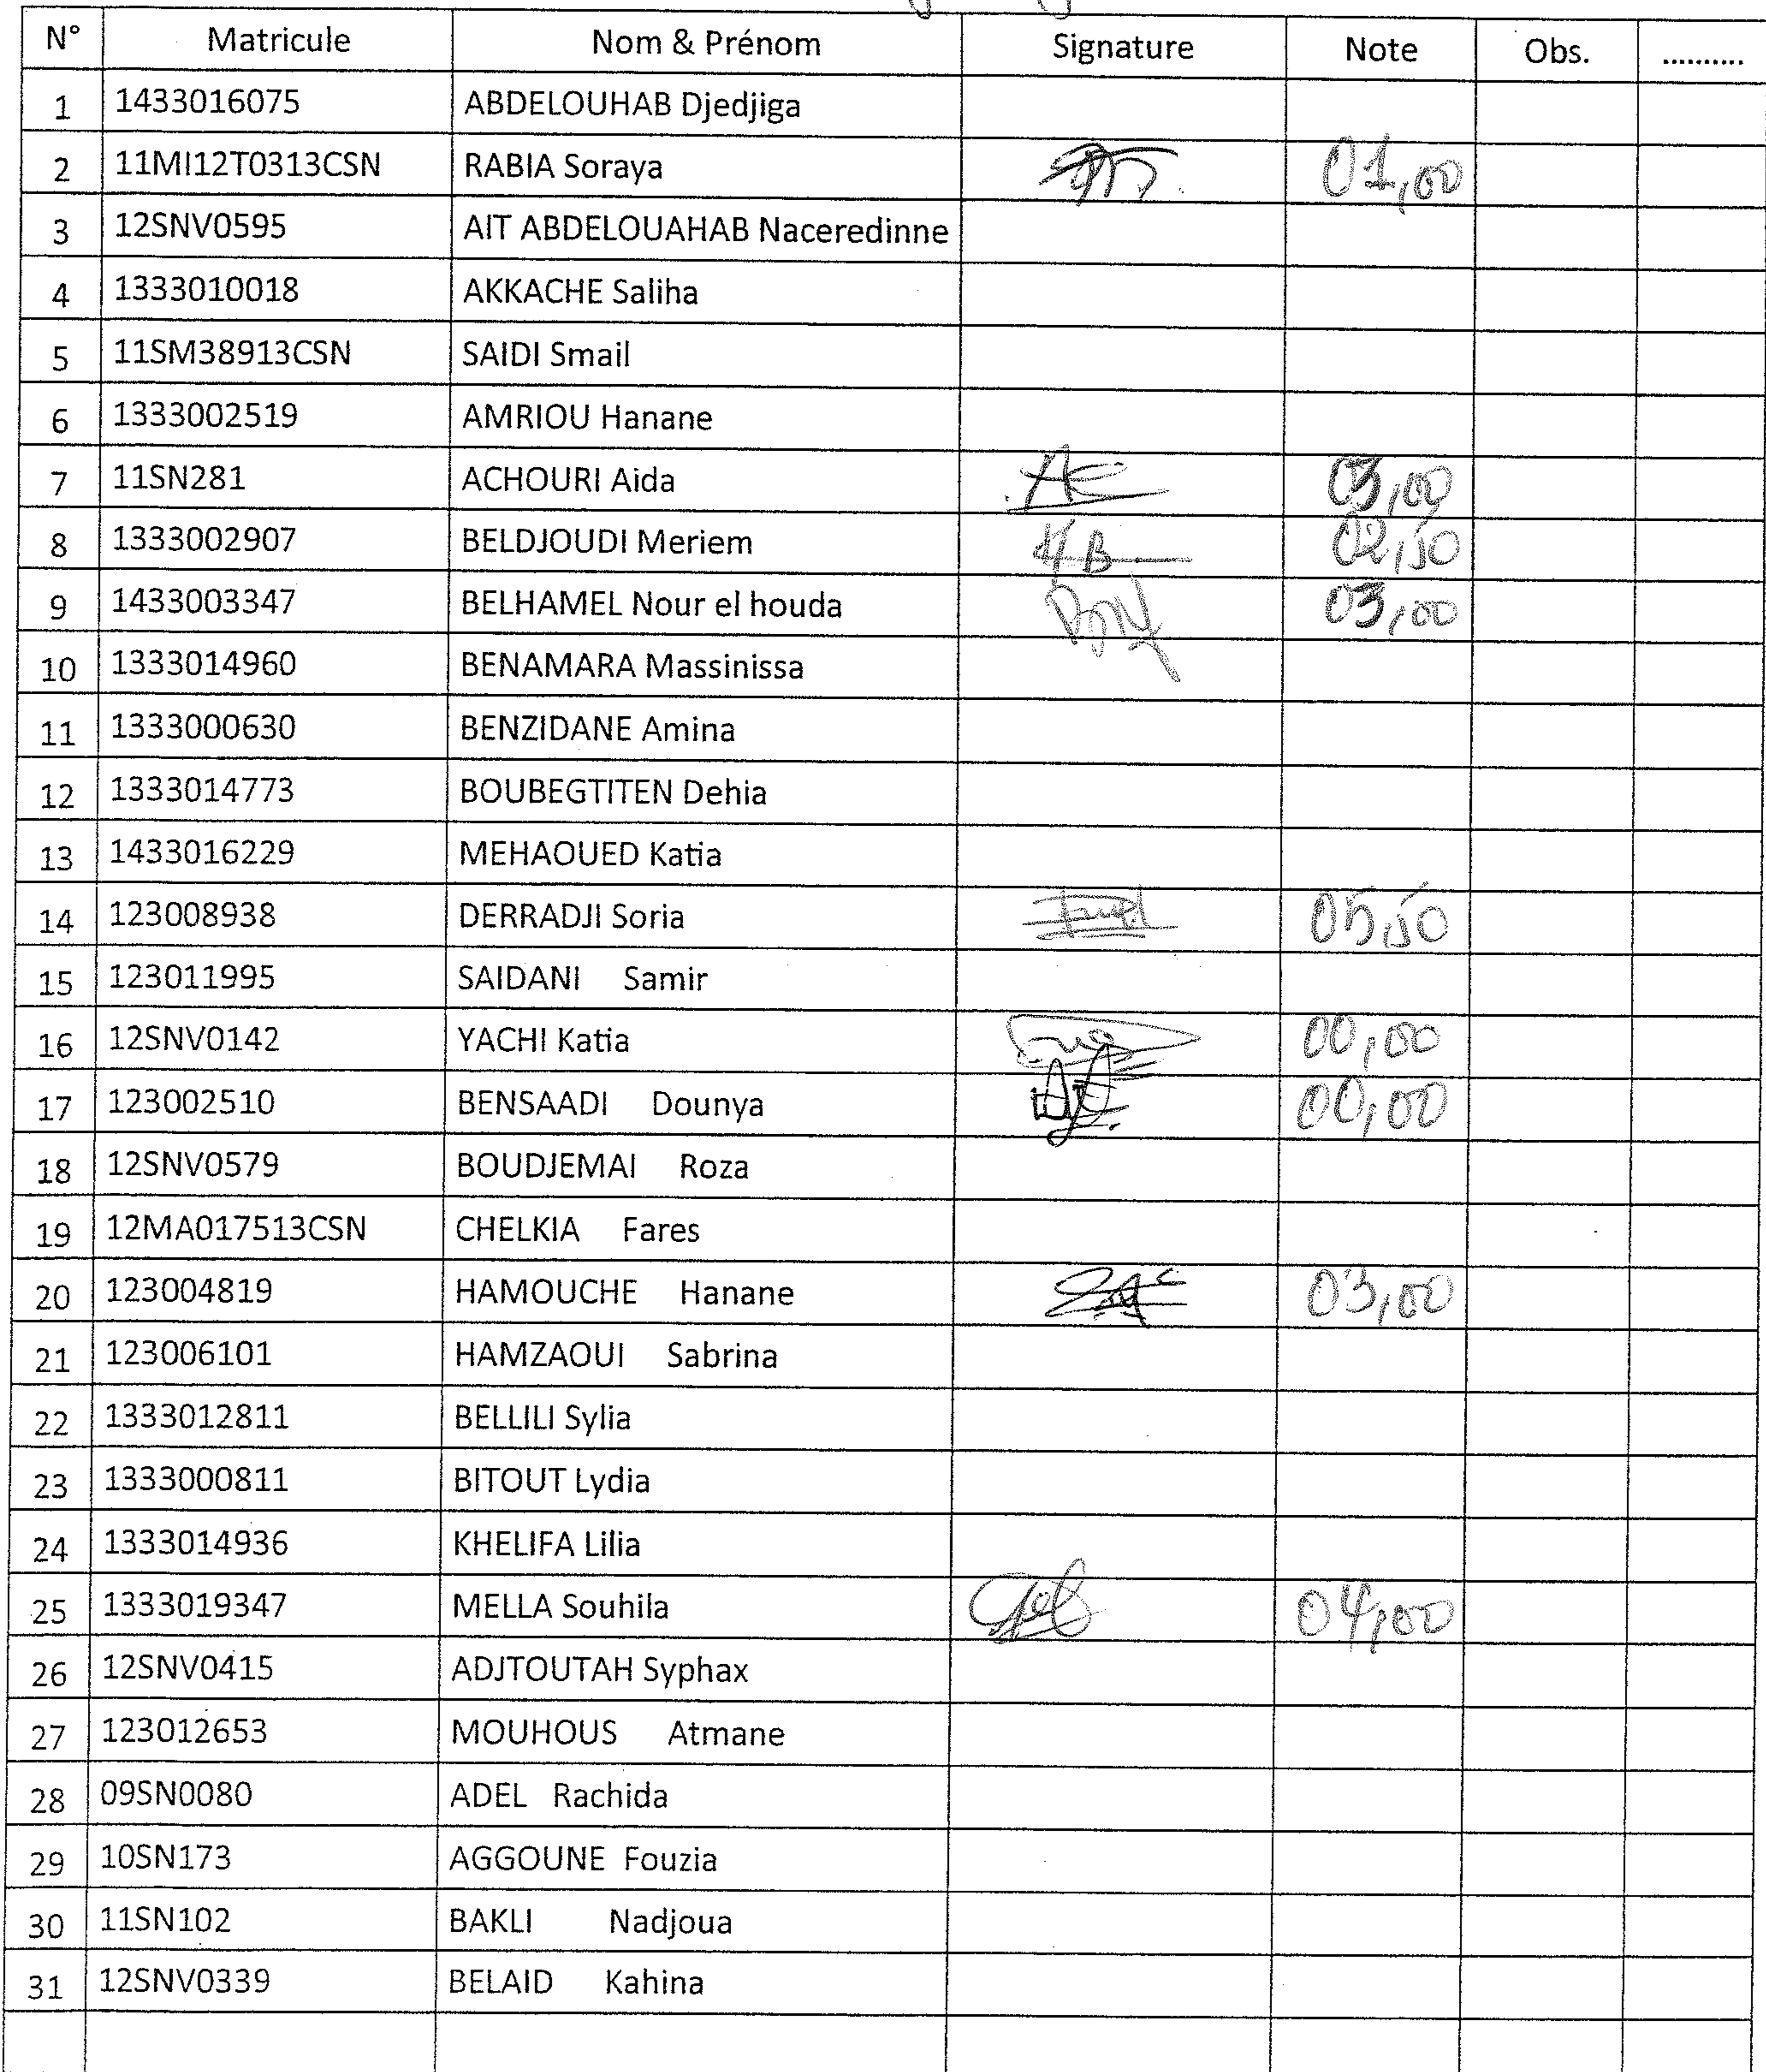 N° Matricule Nom & Prénom Signature Note Obs. ..........
1 1433016075 ABDELOUHAB Djedjiga
2 11MI12T0313CSN RABIA Soraya 01,00
3 12SNV0595 AIT ABDELOUAHAB Naceredinne
4 1333010018 AKKACHE Saliha
5 11SM38913CSN SAIDI Smail
6 1333002519 AMRIOU Hanane
7 11SN281 ACHOURI Aida 03,00
8 1333002907 BELDJOUDI Meriem 02,50
9 1433003347 BELHAMEL Nour el houda 03,00
10 1333014960 BENAMARA Massinissa
11 1333000630 BENZIDANE Amina
12 1333014773 BOUBEGTITEN Dehia
13 1433016229 MEHAOUED Katia
14 123008938 DERRADJI Soria 05,50
15 123011995 SAIDANI Samir
16 12SNV0142 YACHI Katia 00,00
17 123002510 BENSAADI Dounya 00,00
18 12SNV0579 BOUDJEMAI Roza
19 12MA017513CSN CHELKIA Fares
20 123004819 HAMOUCHE Hanane 03,00
21 123006101 HAMZAOUI Sabrina
22 1333012811 BELLILI Sylia
23 1333000811 BITOUT Lydia
24 1333014936 KHELIFA Lilia
25 1333019347 MELLA Souhila 04,00
26 12SNV0415 ADJTOUTAH Syphax
27 123012653 MOUHOUS Atmane
28 09SN0080 ADEL Rachida
29 10SN173 AGGOUNE Fouzia
30 11SN102 BAKLI Nadjoua
31 12SNV0339 BELAID Kahina